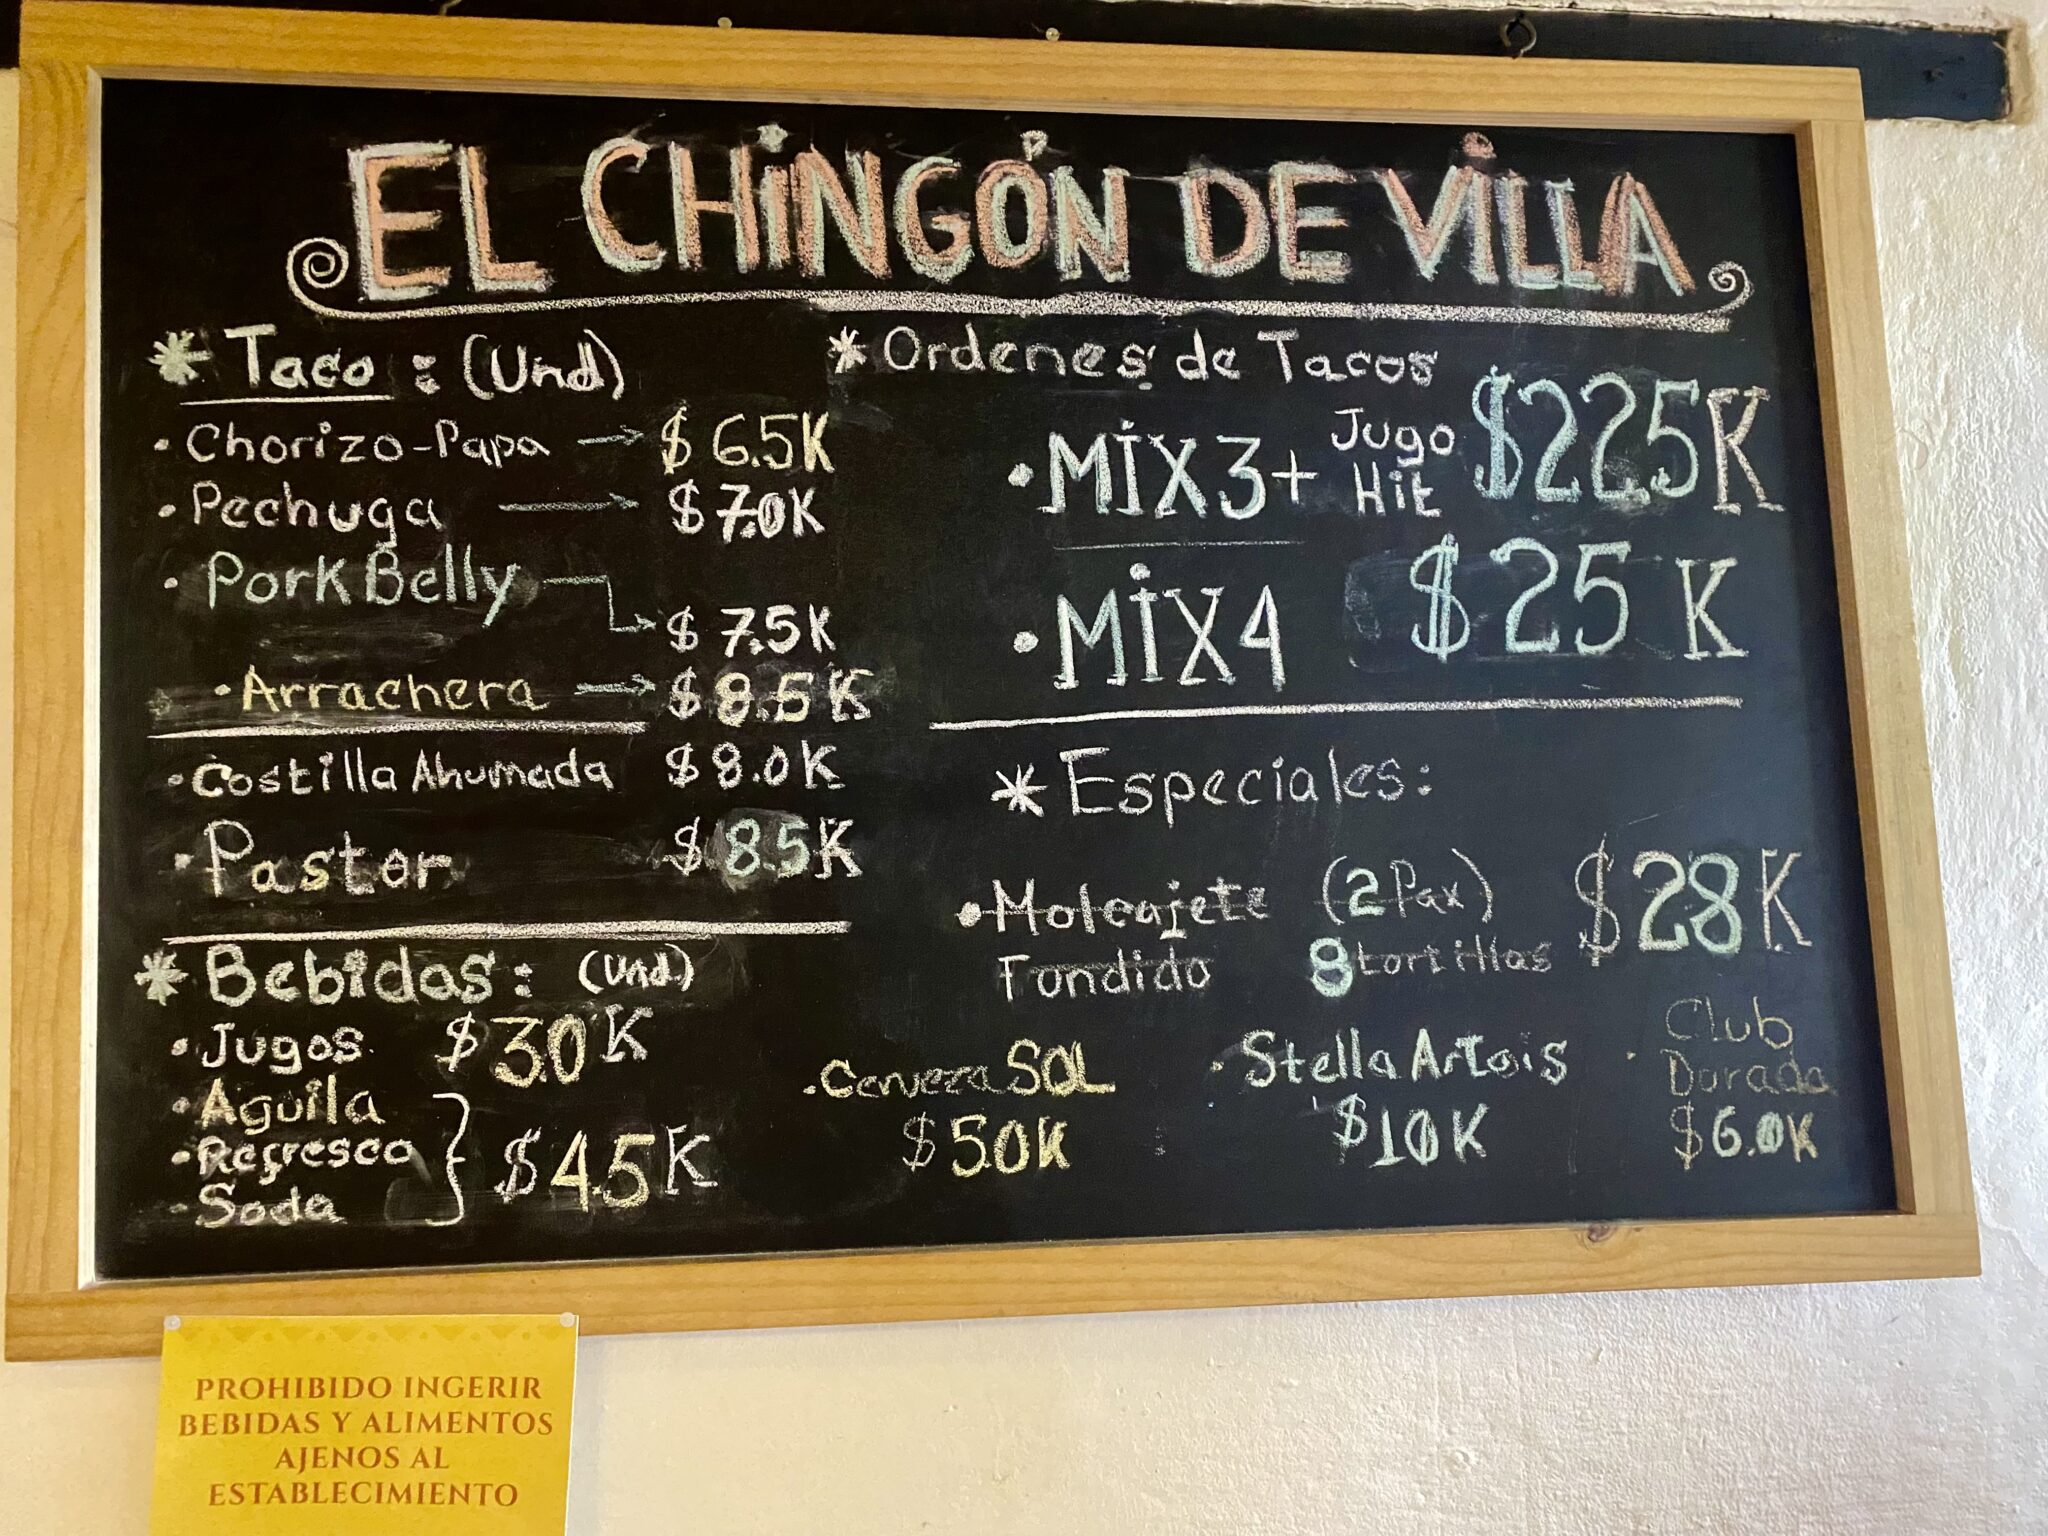 EL CHINGÓN DE VILLA
* Taco : (Und)
• Chorizo-Papa → $ 6.5K
• Pechuga → $ 7.0K
• Pork Belly → $ 7.5K
• Arrachera → $ 8.5K
• Costilla Ahumada $ 8.0K
• Pastor $ 8.5K
* Bebidas : (Und)
• Jugos $ 3.0K
• Aguila
• Refresco } $ 4.5K
• Soda
* Ordenes de Tacos
• MIX 3 + Jugo Hit $22.5K
• MIX 4 $ 25 K
* Especiales:
• Molcajete (2 Pax) $ 28K
Fondido 8 tortillas
• Cerveza SOL
$ 5.0K
• Stella Artois
$10K
• Club
Dorada
$6.0K
PROHIBIDO INGERIR
BEBIDAS Y ALIMENTOS
AJENOS AL
ESTABLECIMIENTO